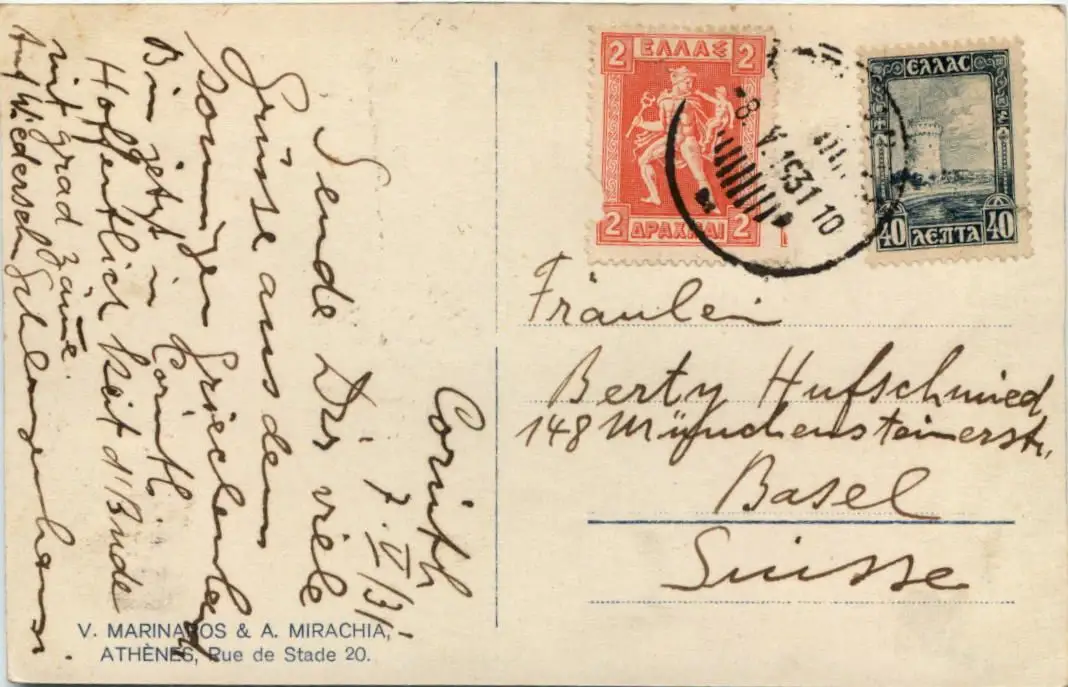 Corinth
7.V.31.
Sende Dir viele
Grüsse aus dem
sonnigen Griechenland
Bin jetzt in Corinth.
Hoffentlich keit d'Bude
nit grad zäme.
Auf Wiedersehn
V. MARINAROS & A. MIRACHIA,
ATHÈNES, Rue de Stade 20.
2 ΕΛΛΑΣ 2
2 ΔΡΑΧΜΑΙ 2
8. V 1931 10
ΕΛΛΑΣ
40 ΛΕΠΤΑ 40
Fräulein
Berty Hufschmied
148 Münchensteinerstr.
Basel
Suisse